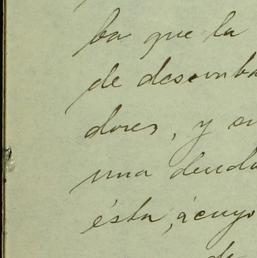 ba que la
de desemba
dores, y su
una deuda
ésta, á cuyo
de